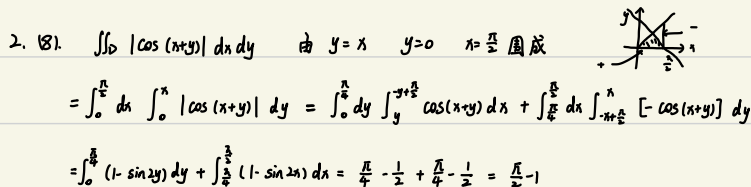 2. (8). ∬_D |cos (x+y)| dx dy 由 y = x y=0 x= π/2 围成
y x + − π/2
= ∫_0^{π/2} dx ∫_0^x |cos (x+y)| dy = ∫_0^{π/4} dy ∫_y^{-y+π/2} cos(x+y) dx + ∫_{π/4}^{π/2} dx ∫_{-x+π/2}^x [- cos(x+y)] dy
= ∫_0^{π/4} (1- sin 2y) dy + ∫_{π/4}^{π/2} (1- sin 2x) dx = π/4 - 1/2 + π/4 - 1/2 = π/2 -1